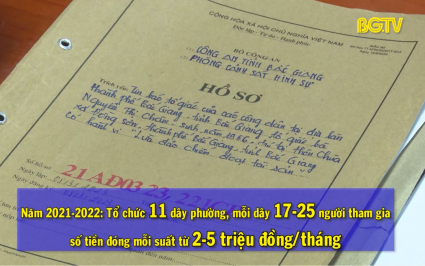 BGTV
CỘNG HÒA XÃ HỘI CHỦ NGHĨA VIỆT NAM
Độc lập - Tự do - Hạnh phúc
BỘ CÔNG AN
CÔNG AN TỈNH BẮC GIANG
PHÒNG CẢNH SÁT HÌNH SỰ
HỒ SƠ
Tin báo tố giác của các công dân tại địa bàn
thành phố Bắc Giang, tỉnh Bắc Giang tố giác bà
Nguyễn Thị Chiêm, sinh năm 1956, trú tại thôn Chùa
xã Tăng Sơn, thành phố Bắc Giang, tỉnh Bắc Giang
có hành vi "Lừa đảo chiếm đoạt tài sản"
21AD03
Năm 2021-2022: Tổ chức 11 dây phường, mỗi dây 17-25 người tham gia
số tiền đóng mỗi suất từ 2-5 triệu đồng/tháng